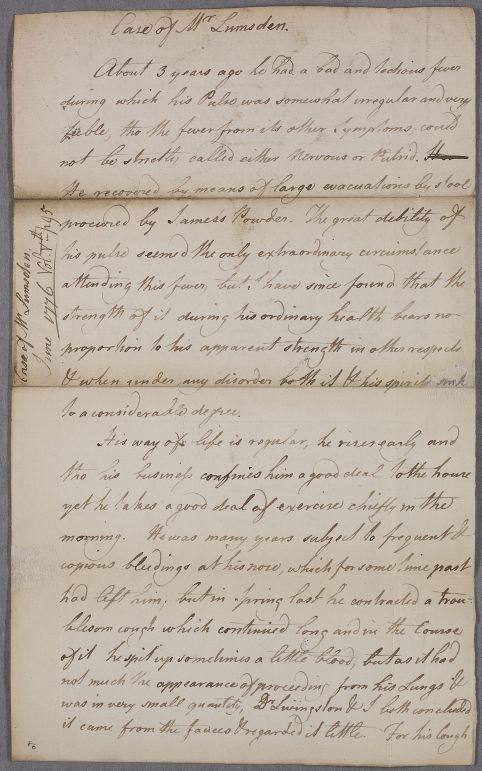 Case of Mr Lumsden.
About 3 years ago he had a bad and tedious fever
during which his Pulse was somewhat irregular and very
feeble, tho the fever from its other Symptoms, could
not be strictly called either Nervous or Putrid.
He recovered by means of large evacuations by stool
procured by James's Powder. The great debility of
his pulse seemed the only extraordinary circumstance
attending this fever, but I have since found that the
strength of it during his ordinary health bears no
proportion to his apparent strength in other respects
& when under any disorder both it & his spirits sink
to a considerable degree.
His way of life is regular, he rises early and
tho his business confines him a good deal to the house
yet he takes a good deal of exercise chiefly in the
morning. He was many years subject to frequent &
copious bleedings at his nose, which for some time past
had left him; but in spring last he contracted a trou-
blesom cough which continued long and in the Course
of it he spit up sometimes a little blood, but as it had
not much the appearance of proceeding from his Lungs &
was in very small quantity, Dr Livingston & I both concluded
it came from the fauces & regarded it little. For his Cough
Case of Mr Lumsden
June 1776 Vol. V p 195
F6